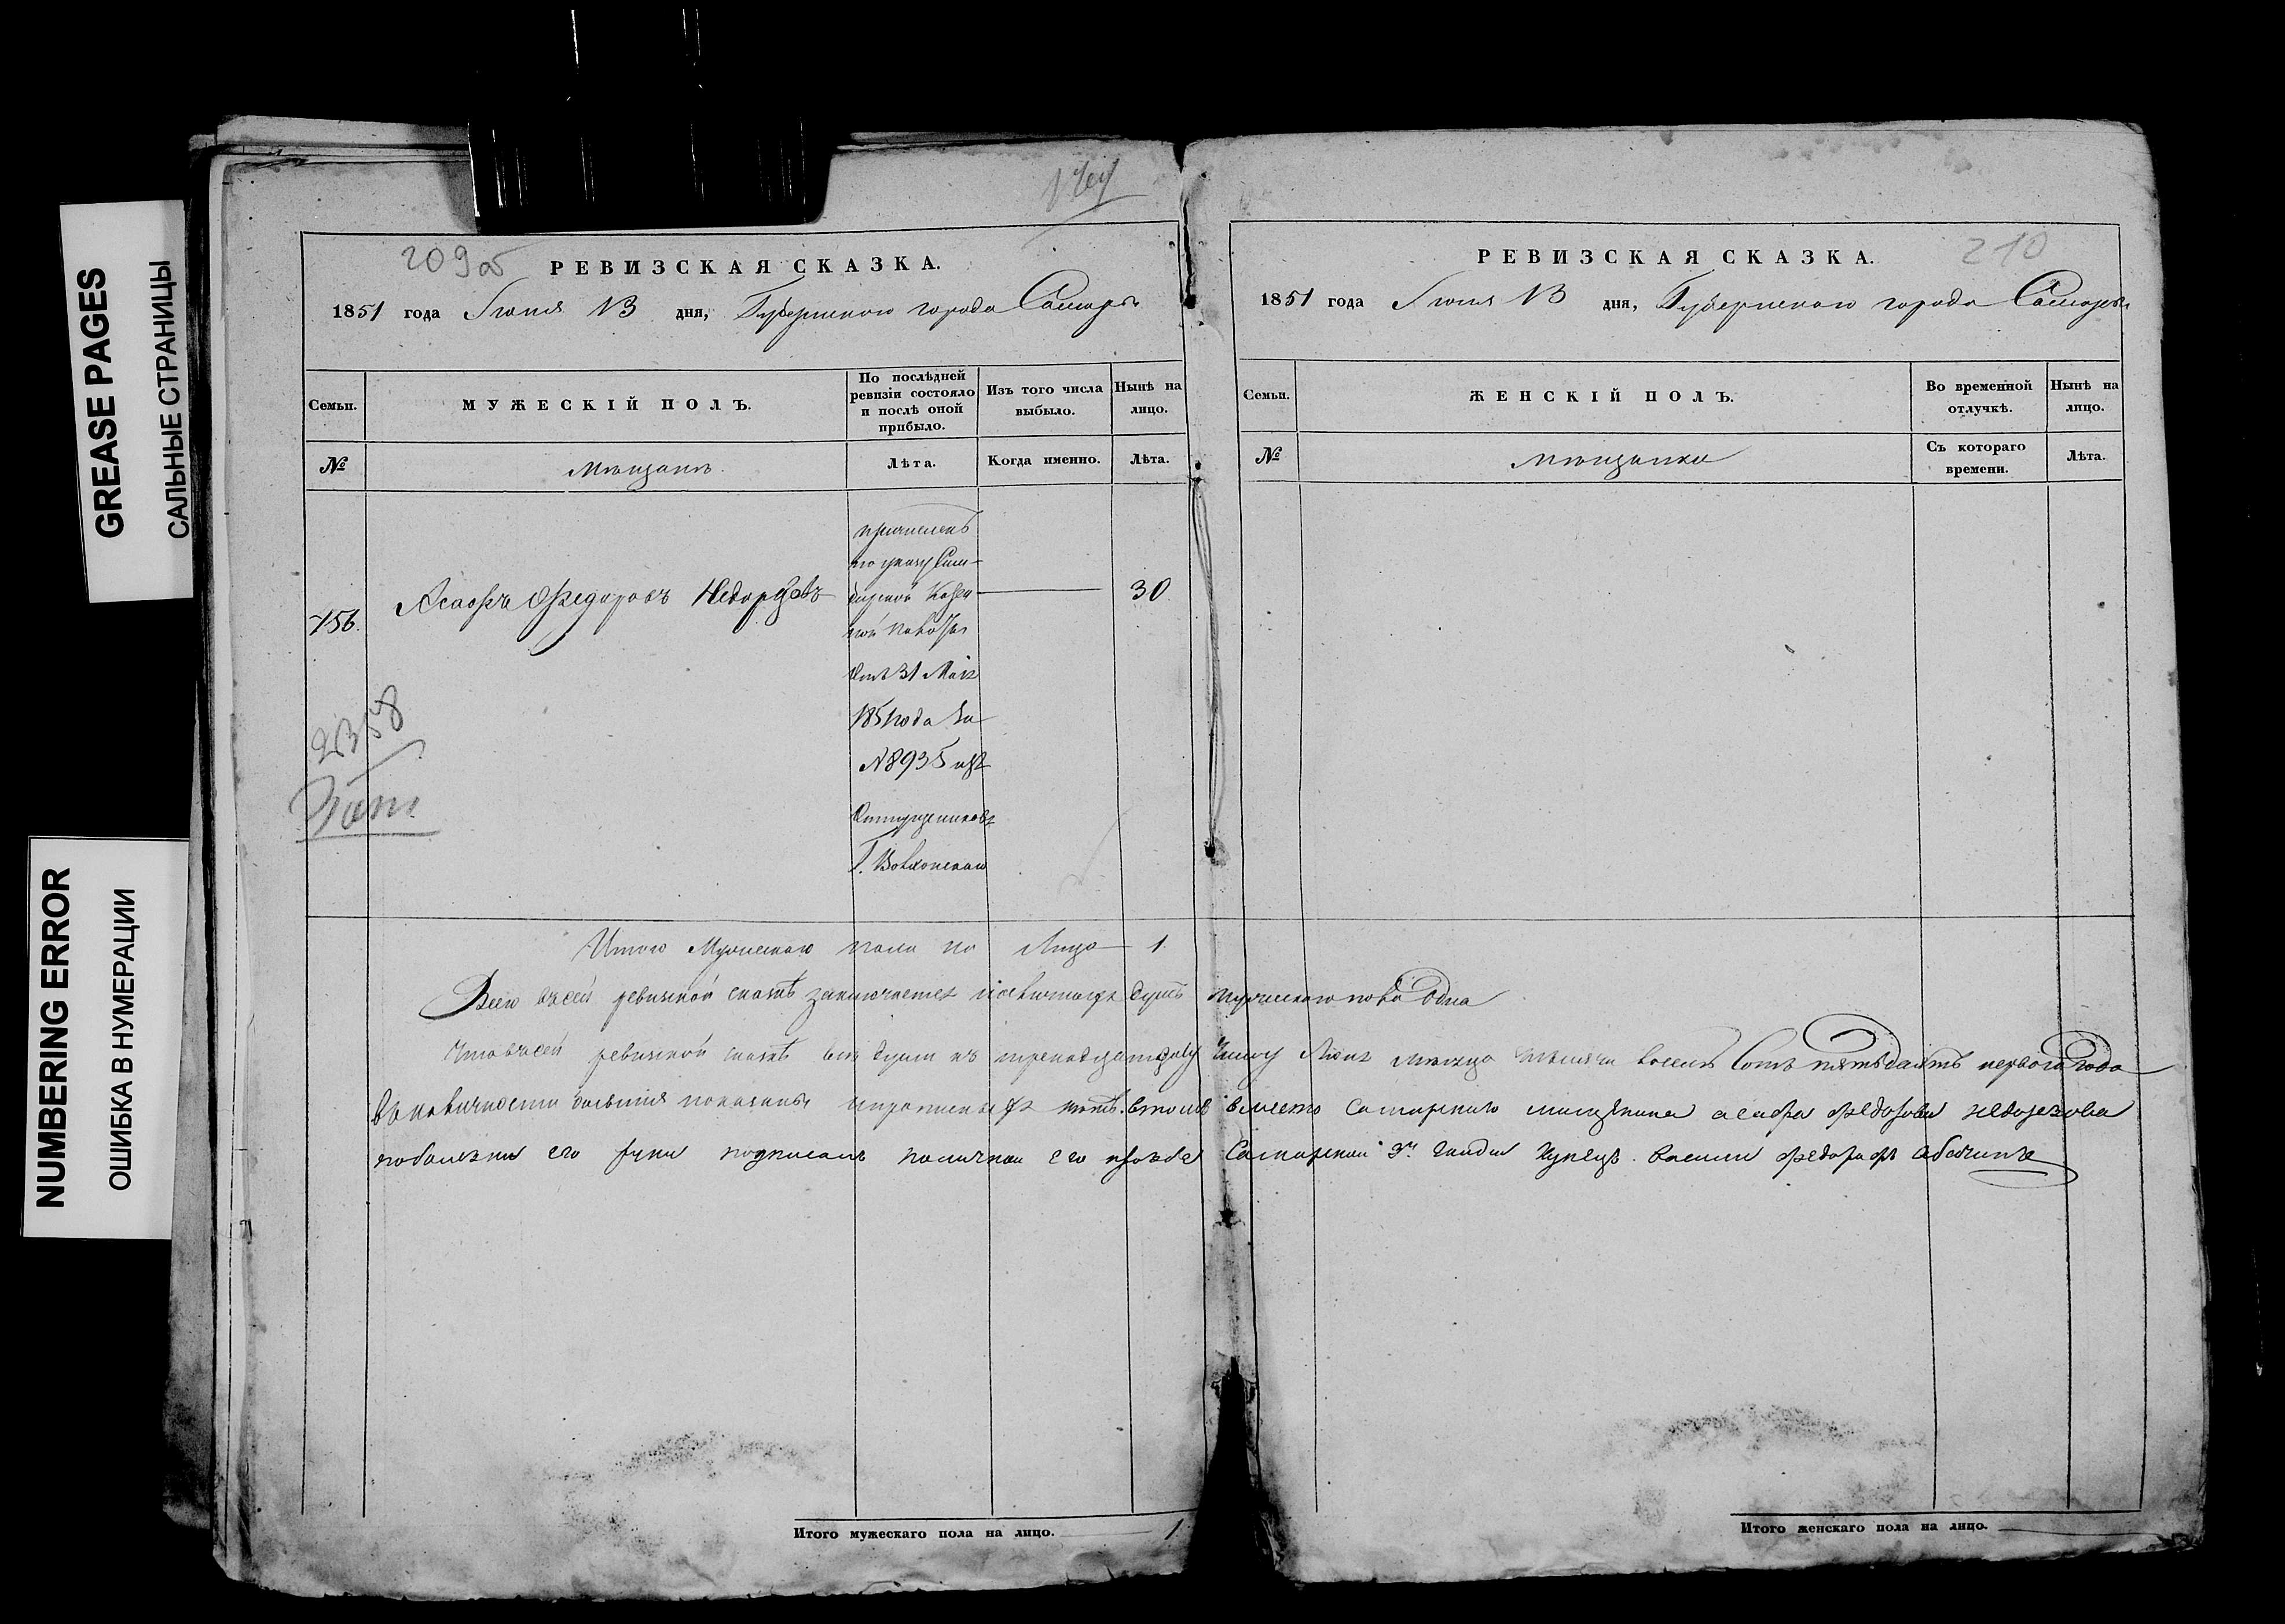 GREASE PAGES
САЛЬНЫЕ СТРАНИЦЫ
NUMBERING ERROR
ОШИБКА В НУМЕРАЦИИ
209об
РЕВИЗСКАЯ СКАЗКА.
1851 года Іюня 13 дня, Губернскаго города Самары
Семьи.
МУЖЕСКІЙ ПОЛЪ.
По послѣдней ревизіи состояло и послѣ оной прибыло.
Изъ того числа выбыло.
Нынѣ на лицо.
№
Мѣщанъ.
Лѣта.
Когда именно.
Лѣта.
756. Асафъ Федоровъ Недорезовъ 30
причисленъ
по указу Сим-
бирской Казен
ной Палаты
Отъ 31 Маія
1851 года За
№ 8935 изъ
Отпущениковъ
Г. Волконскаго
2358
Итого Мужескаго пола на Лицо 1.
Итого мужескаго пола на лицо. 1
210
РЕВИЗСКАЯ СКАЗКА.
1851 года Іюня 13 дня, Губернскаго города Самары
Семьи.
ЖЕНСКІЙ ПОЛЪ.
Во временной отлучкѣ.
Нынѣ на лицо.
№
мѣщанки
Съ котораго времени.
Лѣта.
Всего въ сей ревизской сказкѣ заключается наличныхъ душъ мужескаго пола Одна
Что въ сей ревизской сказкѣ всѣ души къ тренадцатому числу Іюня мѣсяца тысяча восемь Сотъ пятьдесятъ перваго года
въ наличности бывшія показаны и прописныхъ нѣтъ. в томъ вместо самарского мищенина асафа федорова недорезова
его руки подписалъ по личной его прозбе Самарской 3й гилдии купецъ василий федоровъ
Итого женскаго пола на лицо.